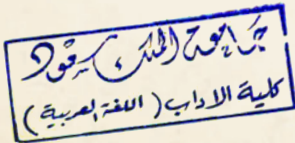 جامعة الملك سعود
كلية الآداب ( اللغة العربية )